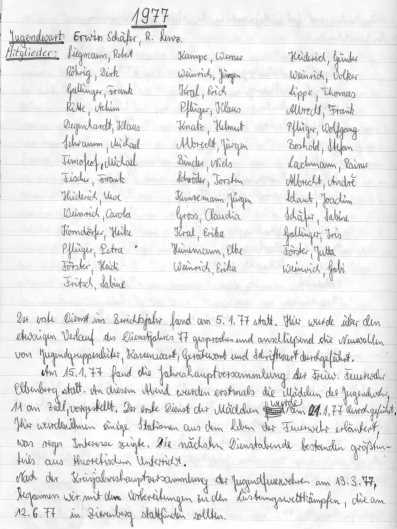 1977
Jugendwart: Erwin Schäfer, R. Lenz.
Mitglieder: Siegmann, Robert Kampe, Werner Heiderich, Günter
Röhrig, Dirk Weinrich, Jürgen Weinrich, Volker
Gallinger, Frank Kral, Erich Lippe, Thomas
Ritte, Achim Pflüger, Klaus Albrecht, Frank
Degenhardt, Klaus Ignatz, Helmut Pflüger, Wolfgang
Schramm, Michael Albrecht, Jürgen Boshold, Stefan
Timofeef, Michael Binder, Niels Lachmann, Rainer
Fische, Frank Schröder, Torsten Albrecht, André
Heiderich, Uwe Hunsemann, Jürgen Schaut, Joachim
Weinrich, Carola Gross, Claudia Schäfer, Sabine
Horndörfer, Heike Kral, Erika Gallinger, Iris
Pflüger, Petra Hünemann, Elke Förster, Jutta
Förster, Heidi Weinrich, Erika Weinrich, Gabi
Fritsch, Sabine
Der erste Dienst im Berichtsjahr fand am 5.1.77 statt. Hier wurde über den
etwaigen Verlauf des Dienstjahres 77 gesprochen und anschließend die Neuwahlen
von Jugendgruppenleiter, Kassenwart, Gerätewart und Schriftwart durchgeführt.
Am 15.1.77 fand die Jahreshauptversammlung der Freiw. Feuerwehr
Elbenberg statt. An diesem Abend wurden erstmals die Mädchen der Jugendwehr,
11 an Zahl, vorgestellt. Der erste Dienst der Mädchen wurde am 21.1.77 durchgeführt.
Hier wurden ihnen einige Stationen aus dem Leben der Feuerwehr erläutert,
was reges Interesse zeigte. Die nächsten Dienstabende bestanden größten-
teils aus theoretischem Unterricht.
Nach der Kreisjahreshauptversammlung der Jugendfeuerwehren am 19.3.77,
begannen wir mit den Vorbereitungen zu den Leistungswettkämpfen, die am
12.6.77 in Zierenberg stattfinden sollten.